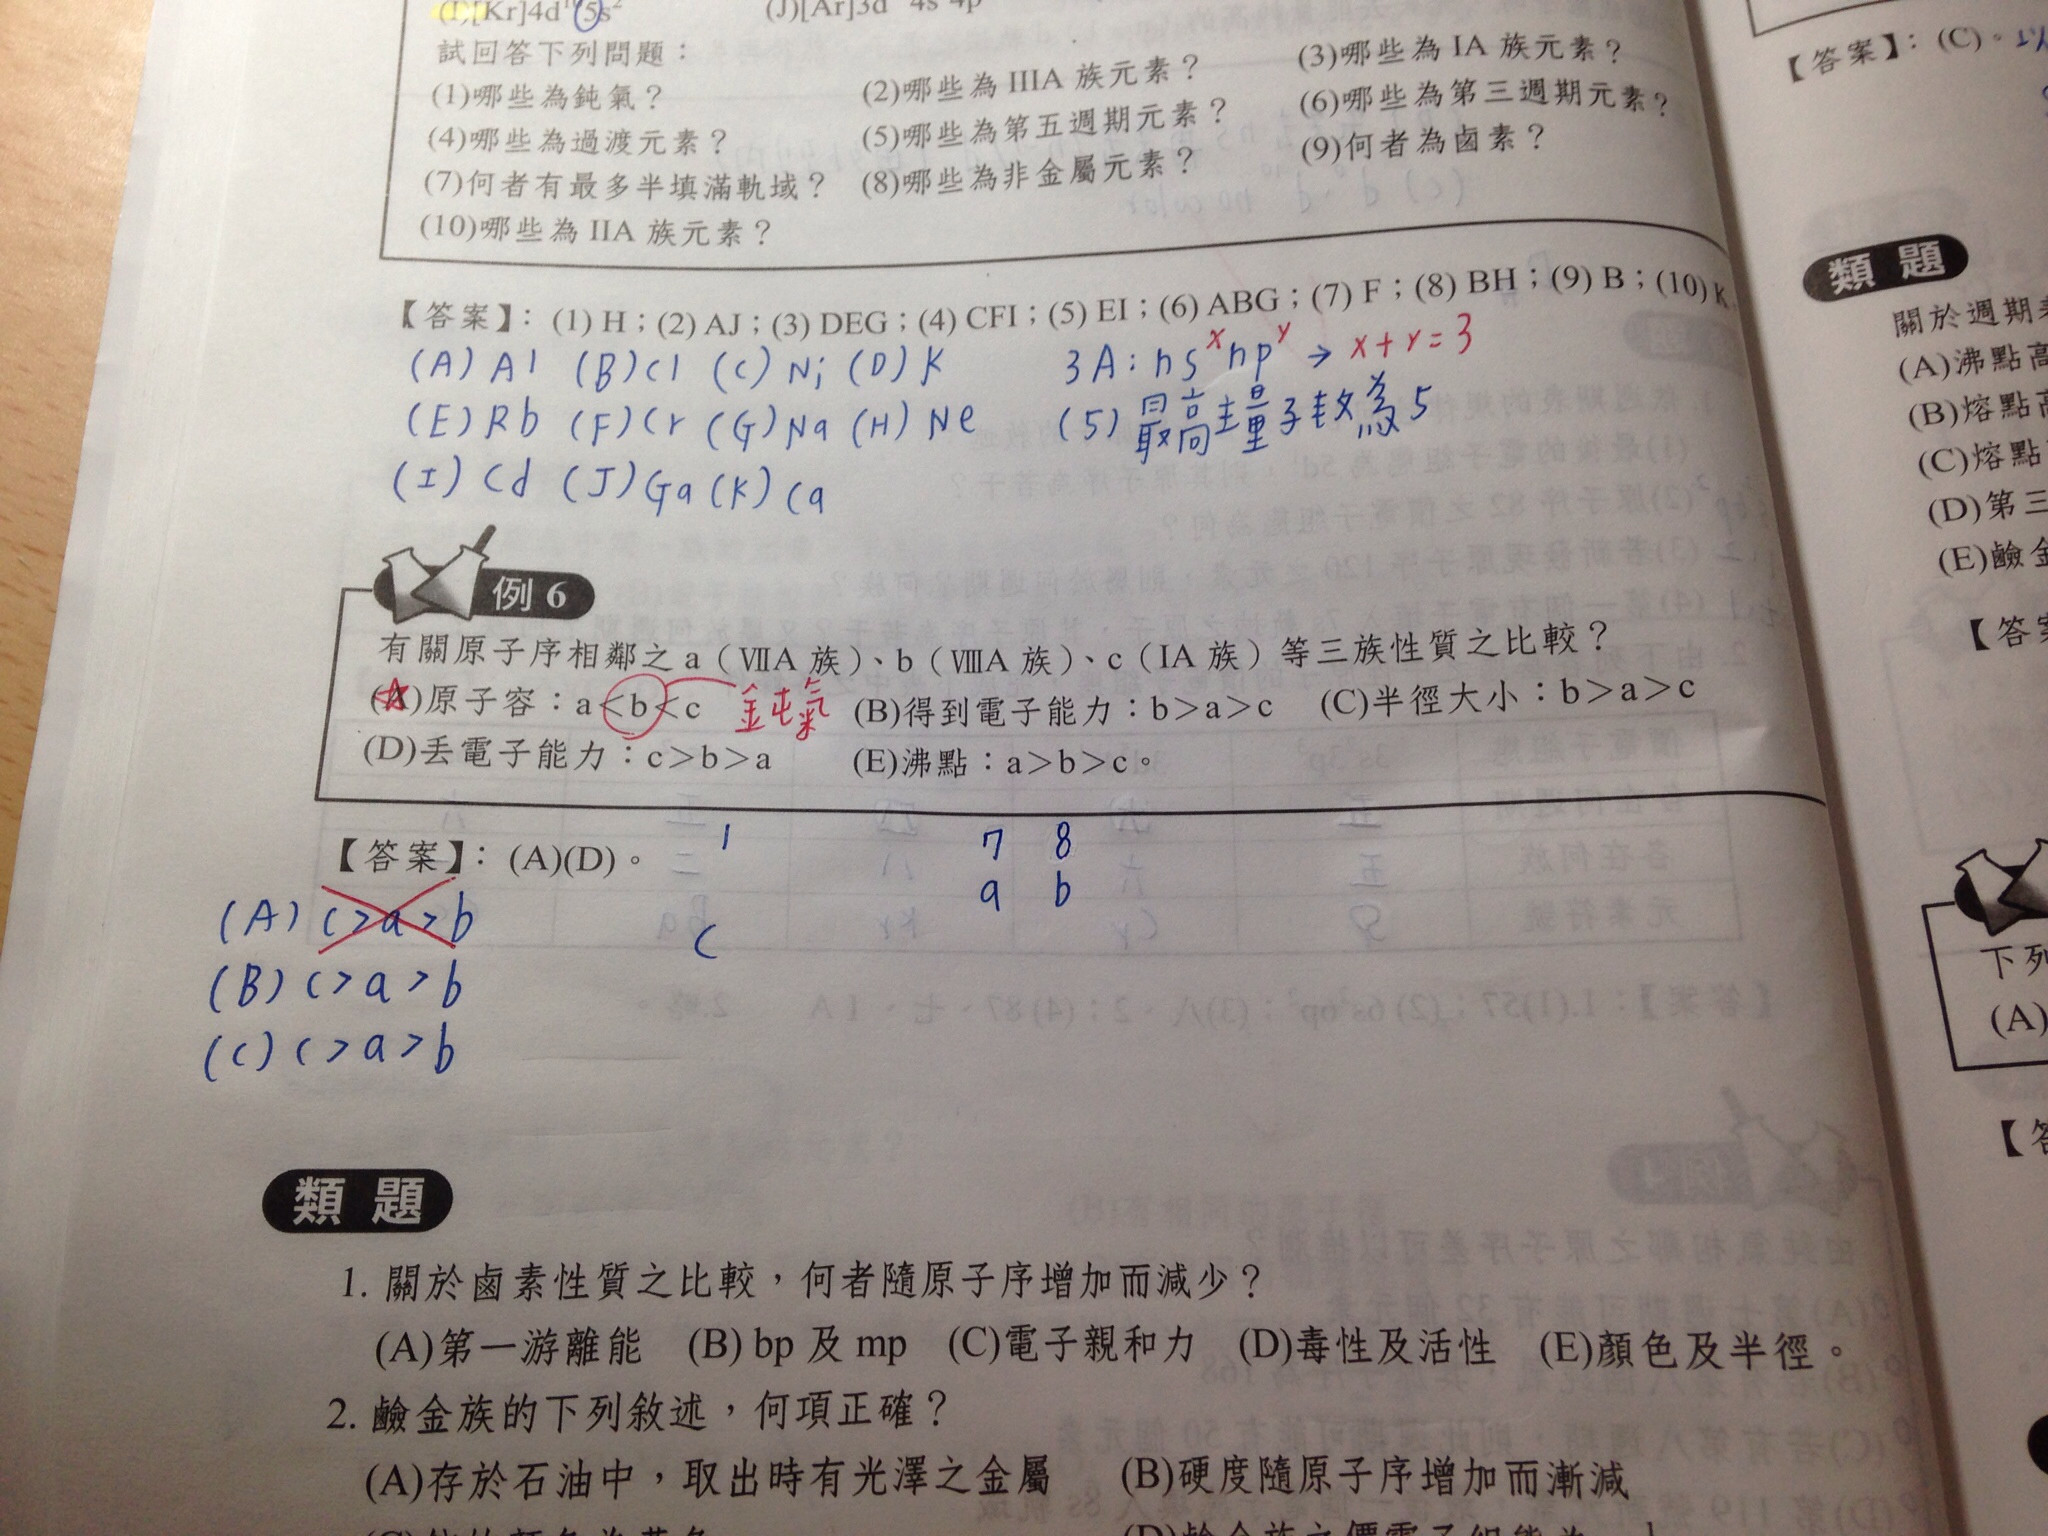 (I)[Kr]4d¹⁰5s² (J)[Ar]3d 4s 4p
試回答下列問題：
(1)哪些為鈍氣？ (2)哪些為 IIIA 族元素？ (3)哪些為 IA 族元素？
(4)哪些為過渡元素？ (5)哪些為第五週期元素？ (6)哪些為第三週期元素？
(7)何者有最多半填滿軌域？ (8)哪些為非金屬元素？ (9)何者為鹵素？
(10)哪些為 IIA 族元素？
【答案】：(1) H；(2) AJ；(3) DEG；(4) CFI；(5) EI；(6) ABG；(7) F；(8) BH；(9) B；(10) K
(A) Al (B) Cl (C) Ni (D) K 3A：nsˣnpʸ → x+y=3
(E) Rb (F) Cr (G) Na (H) Ne (5) 最高主量子數為5
(I) Cd (J) Ga (K) Ca
例 6
有關原子序相鄰之 a（ⅦA 族）、b（ⅧA 族）、c（IA 族）等三族性質之比較？
(A)原子容：a＜b＜c 鈍氣 (B)得到電子能力：b＞a＞c (C)半徑大小：b＞a＞c
(D)丟電子能力：c＞b＞a (E)沸點：a＞b＞c。
【答案】：(A)(D)。
1 7 8
a b
c
(A) c>a>b
(B) c>a>b
(C) c>a>b
類題
1. 關於鹵素性質之比較，何者隨原子序增加而減少？
(A)第一游離能 (B) bp 及 mp (C)電子親和力 (D)毒性及活性 (E)顏色及半徑。
2. 鹼金族的下列敘述，何項正確？
(A)存於石油中，取出時有光澤之金屬 (B)硬度隨原子序增加而漸減
【答案】：(C)。
類題
關於週期
(A)沸點高
(B)熔點高
(C)熔點
(D)第三
(E)鹼金
【答案
下列
(A)